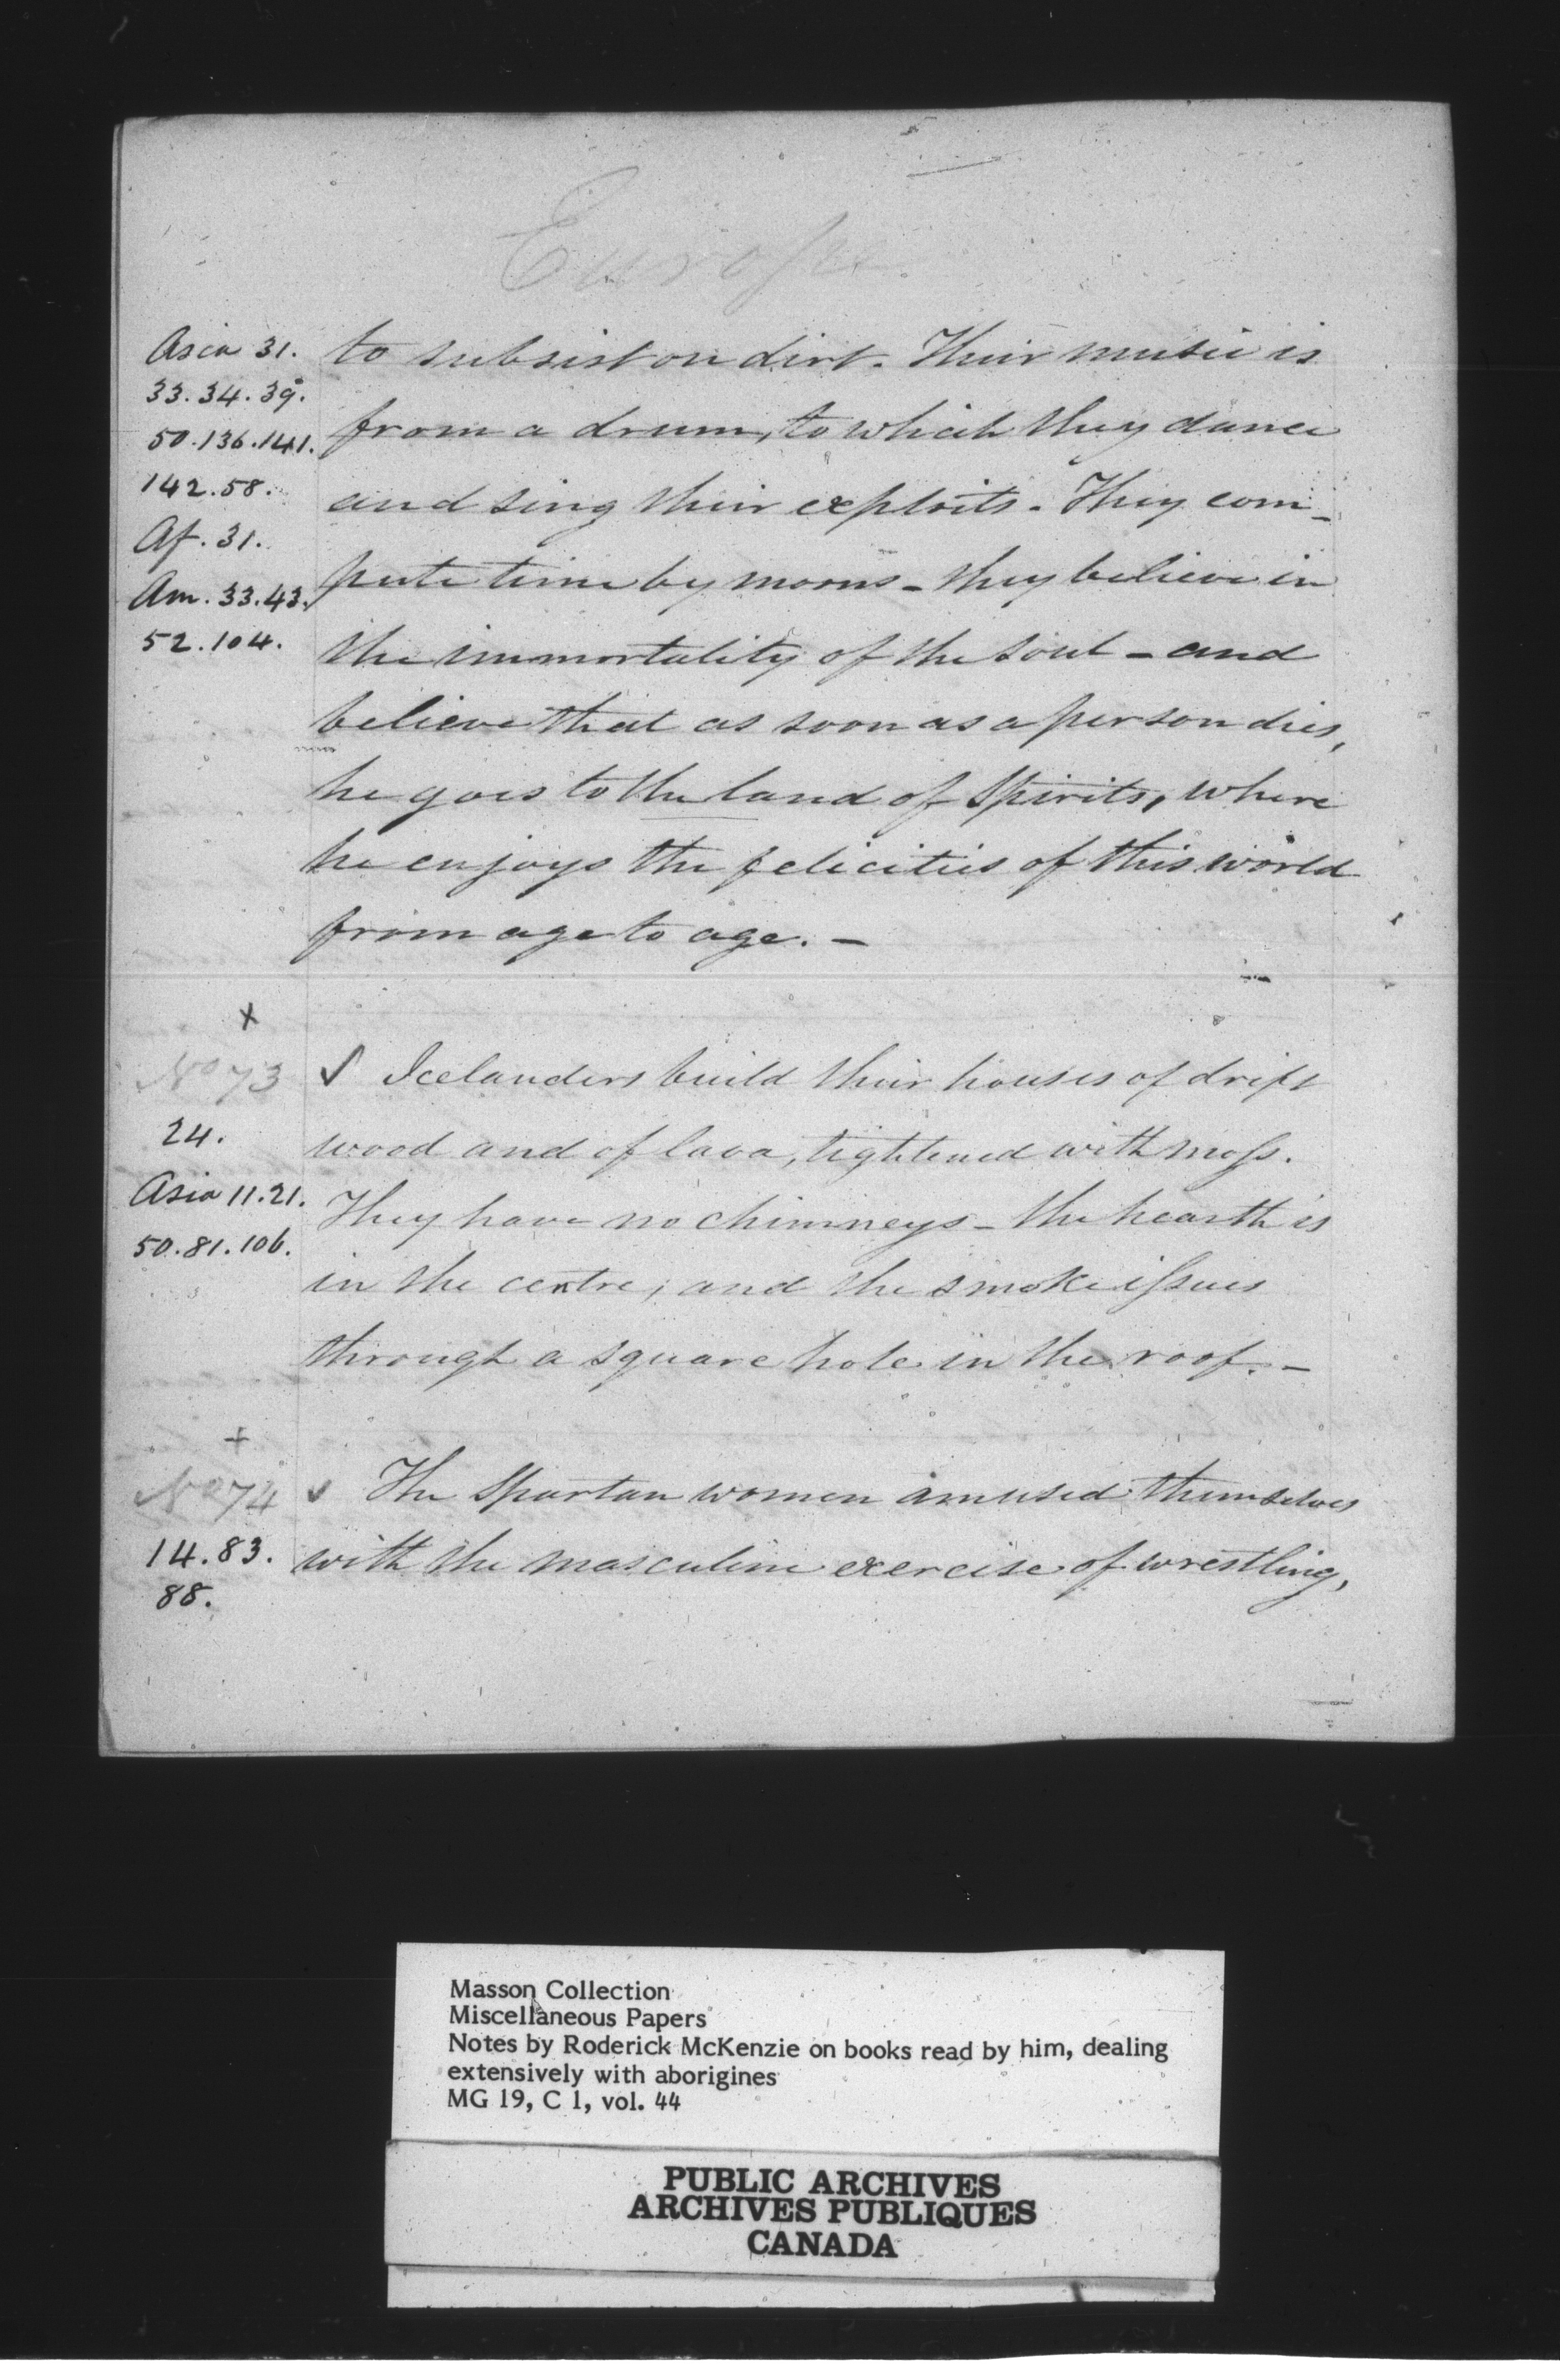 Europe
Asia 31.
33.34.39.
50.136.141.
142.58.
Af. 31.
Am. 33.43.
52.104.
to subsist on dirt. Their music is
from a drum, to which they dance
and sing their exploits. They com-
pute time by moons - they believe in
the immortality of the soul - and
believe that as soon as a person dies,
he goes to the land of Spirits, where
he enjoys the felicities of this world
from age to age. -
x
No 73
24.
Asia 11.21.
50.81.106.
✓ Icelanders build their houses of drift
wood and of lava, tightened with moss.
They have no chimneys - the hearth is
in the centre; and the smoke issues
through a square hole in the roof. -
+
No 74
14.83.
88.
✓ The Spartan women amused themselves
with the masculine exercise of wrestling,
Masson Collection
Miscellaneous Papers
Notes by Roderick McKenzie on books read by him, dealing
extensively with aborigines
MG 19, C 1, vol. 44
PUBLIC ARCHIVES
ARCHIVES PUBLIQUES
CANADA